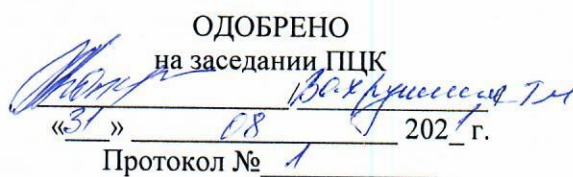 ОДОБРЕНО
на заседании ПЦК
/ Вахрушина ТМ
«31» 08 2021 г.
Протокол № 1